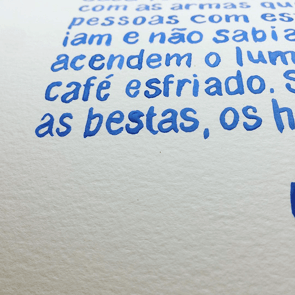 com as armas
pessoas com
iam e não sabia
acendem o
café esfriado.
as bestas, os